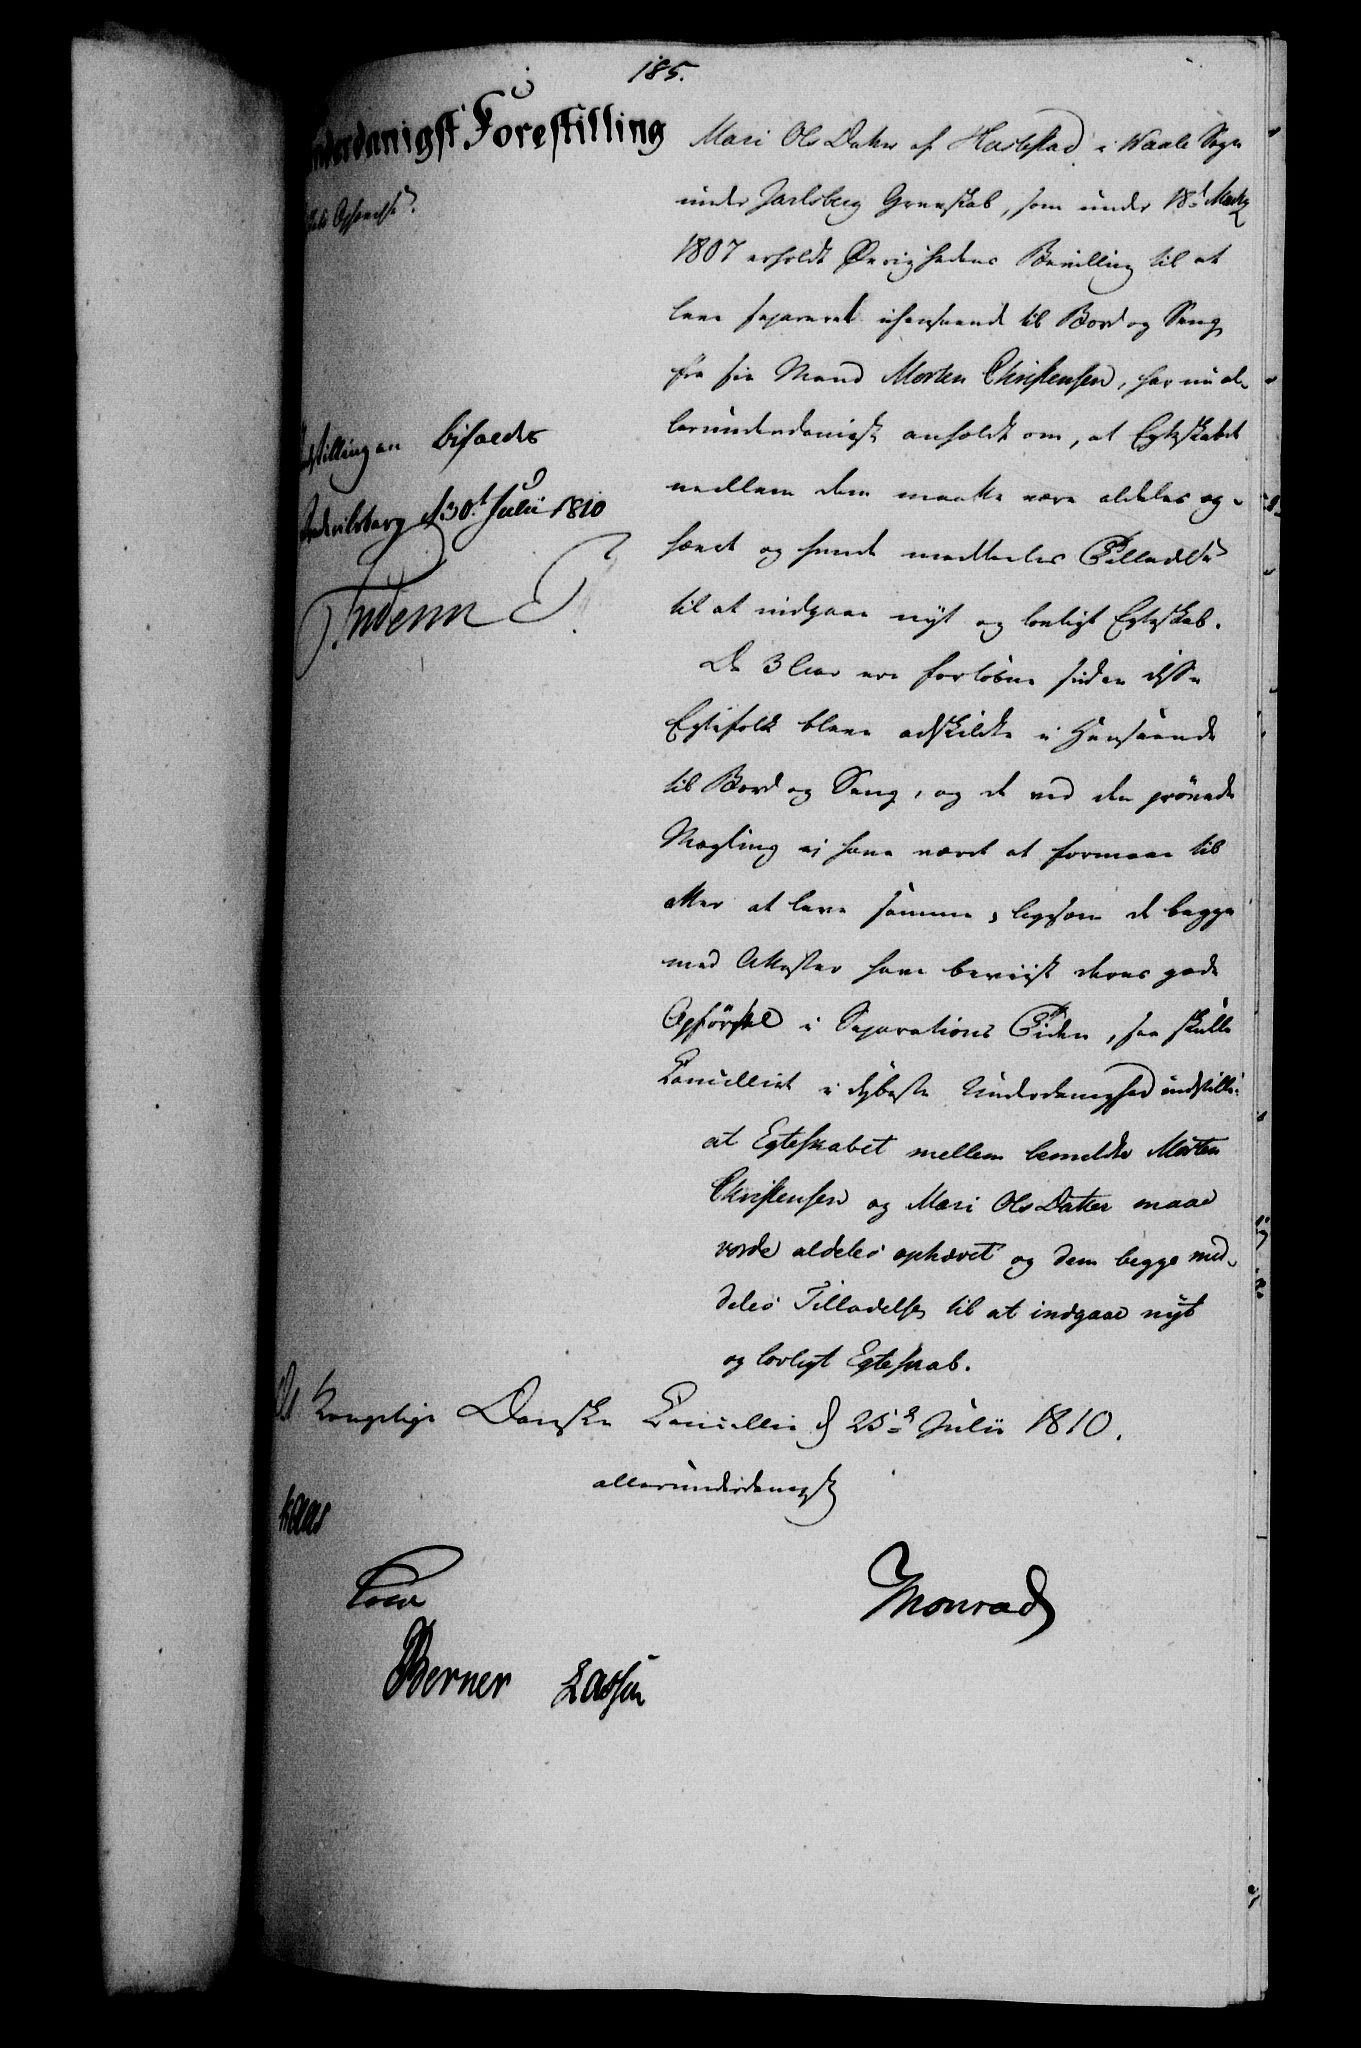 185.
Underdanigst Forestilling
Mari Ols Datter af Hostestad i Waale Sogn
under Jarlsberg Grevskab, som under 18d Martz
1807 erholdt Øvrighedens Bevilling til at
leve separeret i henseende til Bord og Seng
fra sin Mand Morten Christensen, har nu al-
lerunderdanigst anholdt om, at Egteskabet
mellem dem maatte være aldeles op-
hævet og hende meddeeles Tilladelse
til at indgaae nyt og lovligt Egteskab.
Da 3 Aar ere forløbne siden disse
Egtefolk bleve adskildte i Henseende
til Bord og Seng, og de ved den prøvede
Mægling ej have været at formaae til
atter at leve sammen, ligesom de begge
med Attester have beviist deres gode
Opførsel i Separations Tiden, saa skulle
Cancelliet i dybeste Underdanighed indstille:
at Egteskabet mellem bemeldte Morten
Christensen og Mari Ols Datter maae
vorde aldeles ophævet og dem begge med-
deles Tilladelse til at indgaae nyt
og lovligt Egteskab.
Indstillingen bifaldes
Frederiksberg d 30t Julii 1810
Frederik R
Det Kongelige Danske Cancellie d 25d Julii 1810.
allerunderdanigst
Kaas
Monrad
Berner Lassen